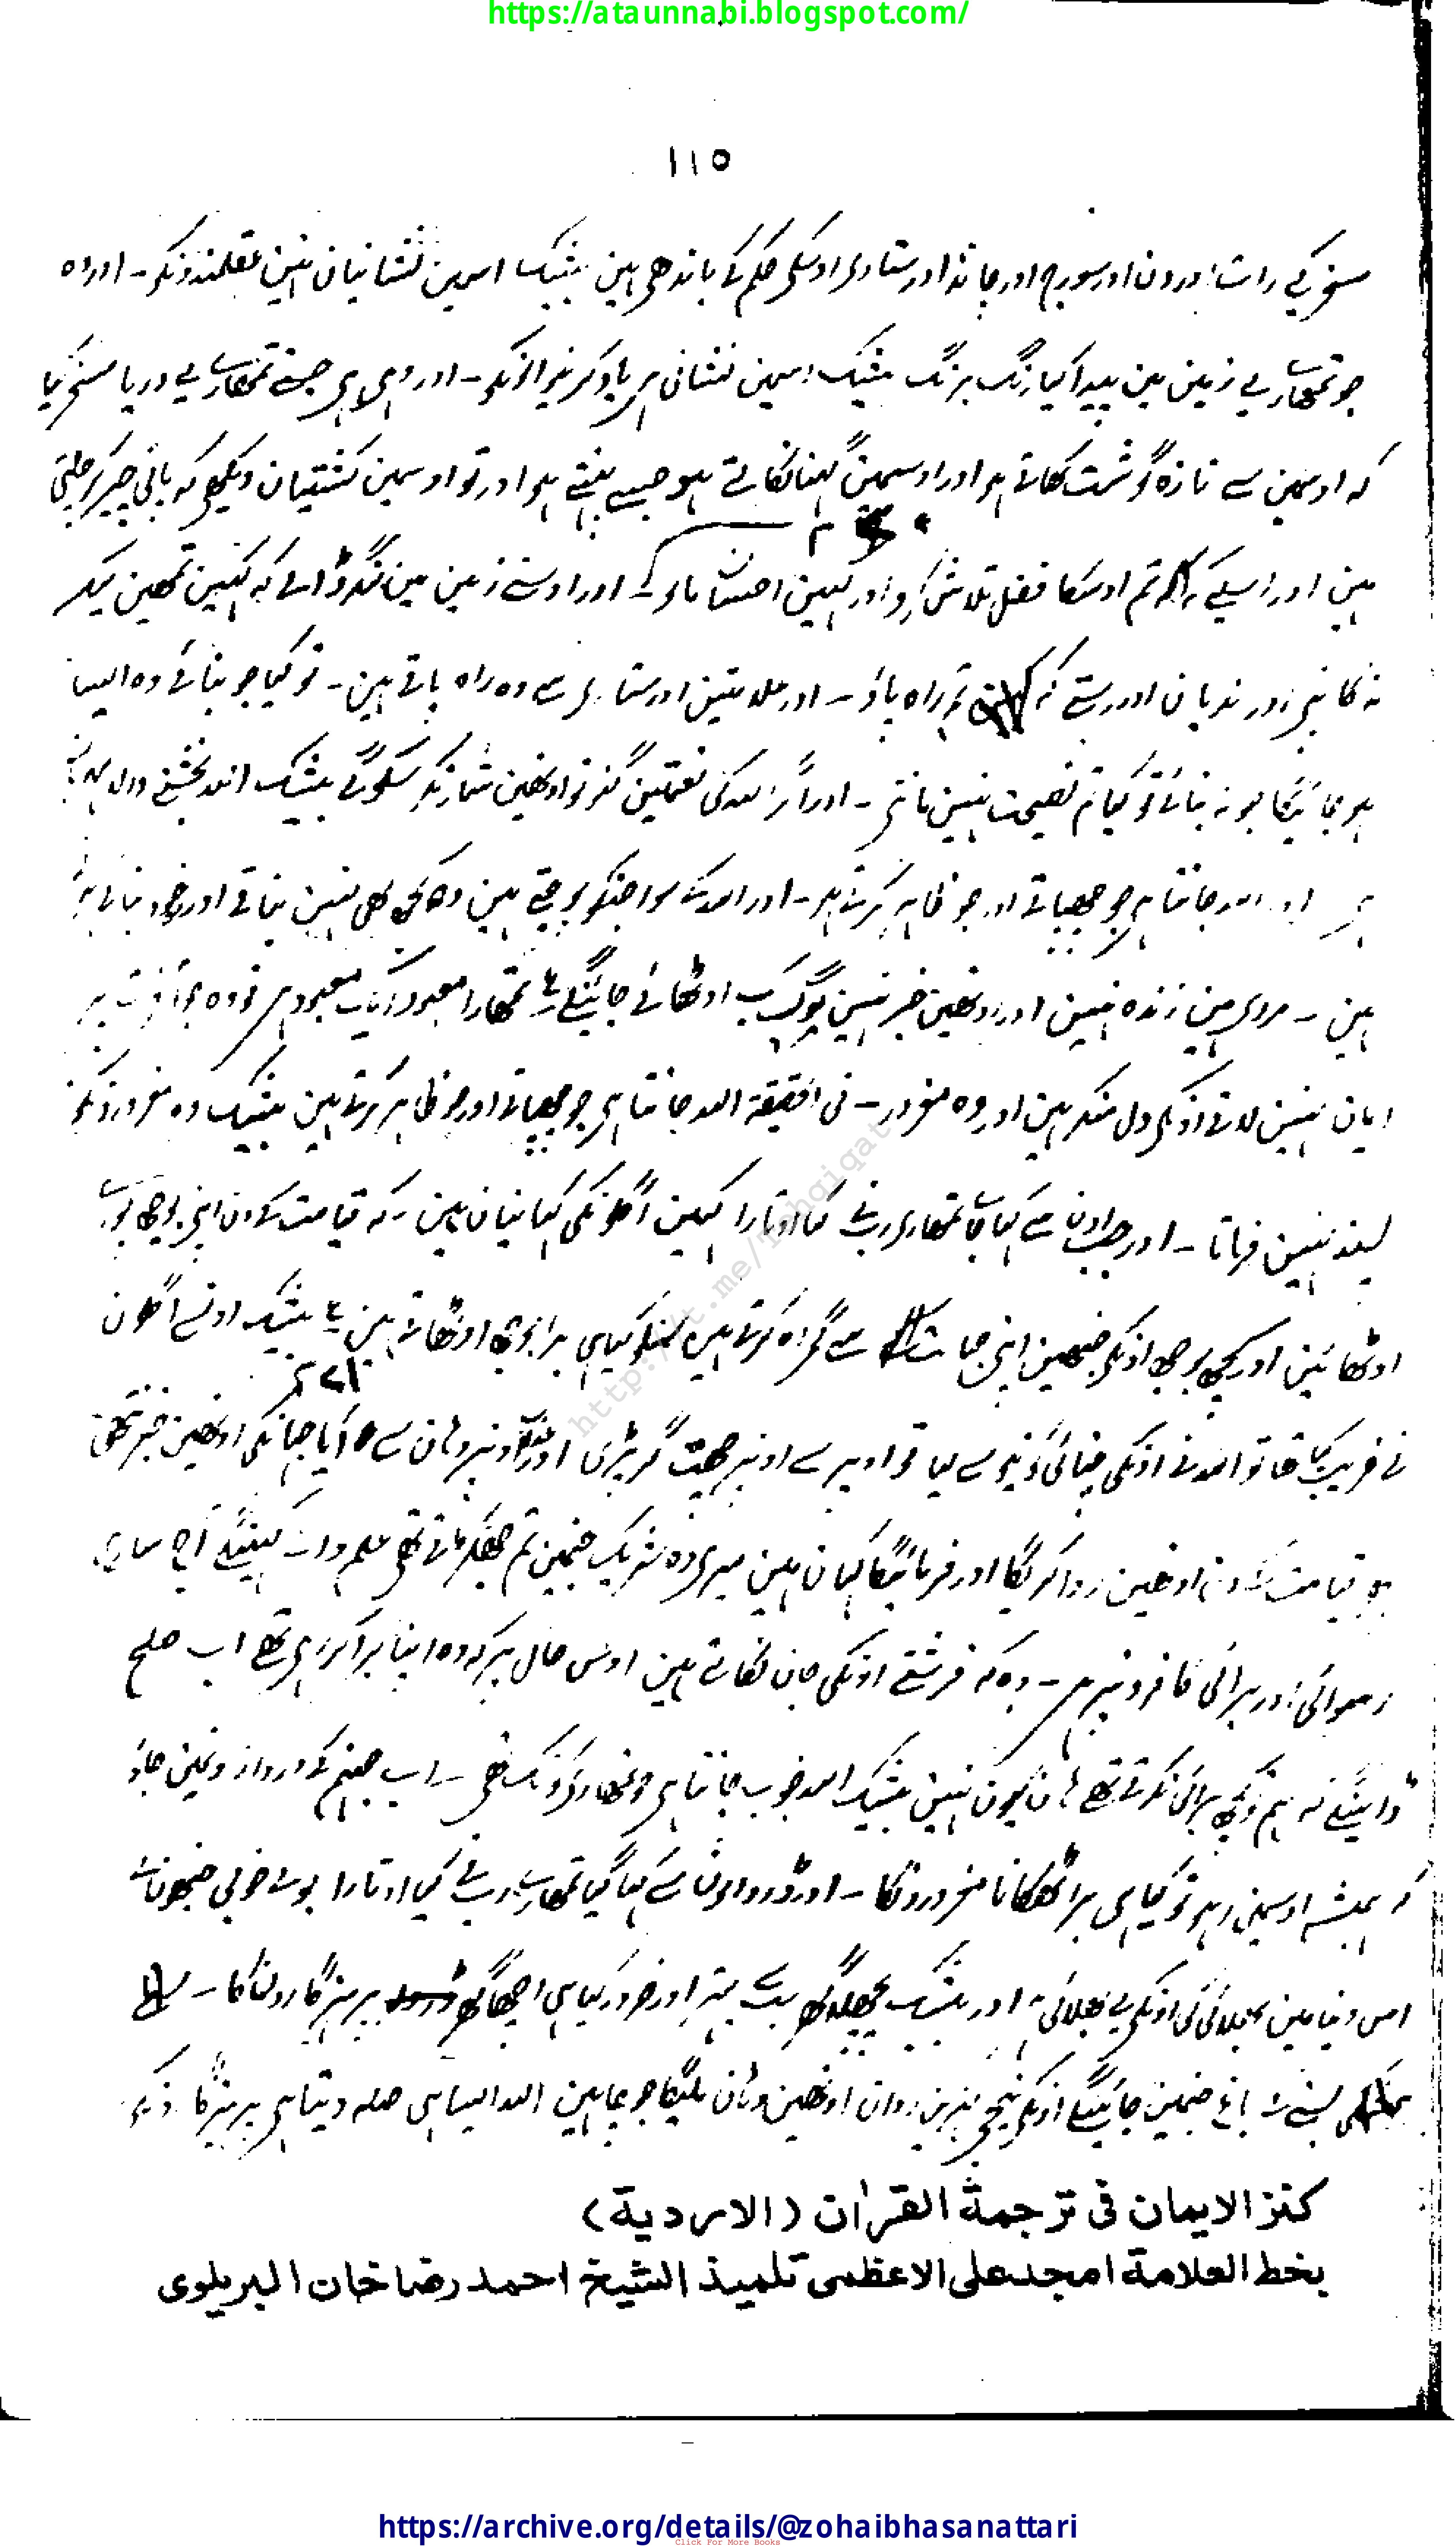 https://ataunnabi.blogspot.com/
۱۱۵
مسخر کیے رات اور دن اور سورج اور چاند اور ستارے اوسکے حکم کے باندھے ہین بیشک اسمین نشانیان ہین عقلمندونکو ـ اور وہ
جو تمھارے لیے زمین مین پیدا کیا رنگ برنگ بیشک اسمین نشانی ہے یاد کرنیوالونکو ـ اور وہی ہے جسنے تمھارے لیے دریا مسخر کیا
کہ اوسمین سے تازہ گوشت کھاتے ہو اور اوسمین سے گہنا نکالتے ہو جسے پہنتے ہو اور تو اوسمین کشتیان دیکھے کہ پانی چیر کر چلتی
ہین اور اسلیے کہ تم اوسکا فضل تلاش کرو اور کہین احسان مانو ـ اور اوسنے زمین مین لنگر ڈالے کہ کہین تمھین لیکر
نہ کانپے اور ندیان اور رستے کہ تم راہ پاؤ ـ اور علامتین اور ستارے سے وہ راہ پاتے ہین ـ تو کیا جو بنائے وہ ایسا
ہو جائیگا جو نہ بنائے تو کیا تم نصیحت نہین مانتے ـ اور اگر اللہ کی نعمتین گنو تو اونھین شمار نکر سکوگے بیشک اللہ بخشنے والا مہربان
ہے اور اللہ جانتا ہے جو چھپاتے اور جو ظاہر کرتے ہو ـ اور اللہ کے سوا جنکو پوجتے ہین وہ کچھ بھی نہین بناتے اور خود بنائے ہوئے
ہین ـ مردے ہین زندہ نہین اور اونھین خبر نہین لوگ کب اوٹھائے جائینگے تمھارا معبود ایک معبود ہے تو وہ جو آخرت پر
ایمان نہین لاتے اونکے دل منکر ہین اور وہ مغرور ـ فی الحقیقۃ اللہ جانتا ہے جو چھپاتے اور جو ظاہر کرتے ہین بیشک وہ مغرورونکو
پسند نہین فرماتا ـ اور جب اون سے کہا جائے تمھارے رب نے کیا اوتارا کہین اگلونکی کہانیان ہین ـ کہ قیامت کے دن اپنے بوجھ پورے
اوٹھائین اور کچھ بوجھ اونکے جنھین اپنی جہالت سے گمراہ کرتے ہین سنلو کیا ہی برا بوجھ اوٹھاتے ہین بیشک اونسے اگلون
نے فریب کیا تھا تو اللہ نے اونکی چنائی کو نیو سے لیا تو اوپر سے اونپر چھت گر پڑی اور عذاب اونپر وہان سے آیا جہانکی اونھین خبر نتھی
پھر قیامت کے دن اونھین رسوا کریگا اور فرمائیگا کہان ہین میرے وہ شریک جنمین تم جھگڑتے تھے علم والے کہینگے آج ساری
رسوائی اور برائی کافرونپر ہے ـ وہ کہ فرشتے اونکی جان نکالتے ہین اوس حال پر کہ وہ اپنا برا کر رہے تھے اب صلح
ڈالینگے کہ ہم تو کچھ برائی نکرتے تھے ہان کیون نہین بیشک اللہ خوب جانتا ہے جو تمھارے کوتک تھے ـ اب جہنم کے دروازونمین جاؤ
کہ ہمیشہ اوسمین رہو تو کیا ہی برا ٹھکانا مغرورونکا ـ اور ڈر والون سے کہا گیا تمھارے رب نے کیا اوتارا بولے خوبی جنھونے
اس دنیا مین بھلائی کی اونکے لیے بھلائی ہے اور بیشک پچھلا گھر سب سے بہتر اور ضرور کیا ہی اچھا گھر پرہیزگارونکا ـ
بسنے کے باغ جنمین جائینگے اونکے نیچے نہرین روان اونھین وہان ملیگا جو چاہین اللہ ایسا ہی صلہ دیتا ہے پرہیزگارونکو
کنز الایمان فی ترجمۃ القراٰن (الاردیۃ)
بخط العلامۃ امجد علی الاعظمی تلمیذ الشیخ احمد رضا خان البریلوی
https://archive.org/details/@zohaibhasanattari
Click For More Books
http://t.me/Tehqiqat